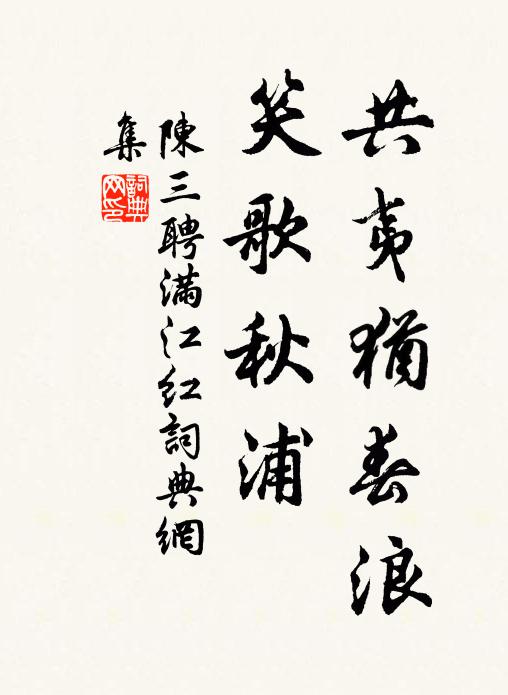 共夷猶春浪
笑歌秋浦
陳三聘滿江紅詞典網
集
詞典
网印